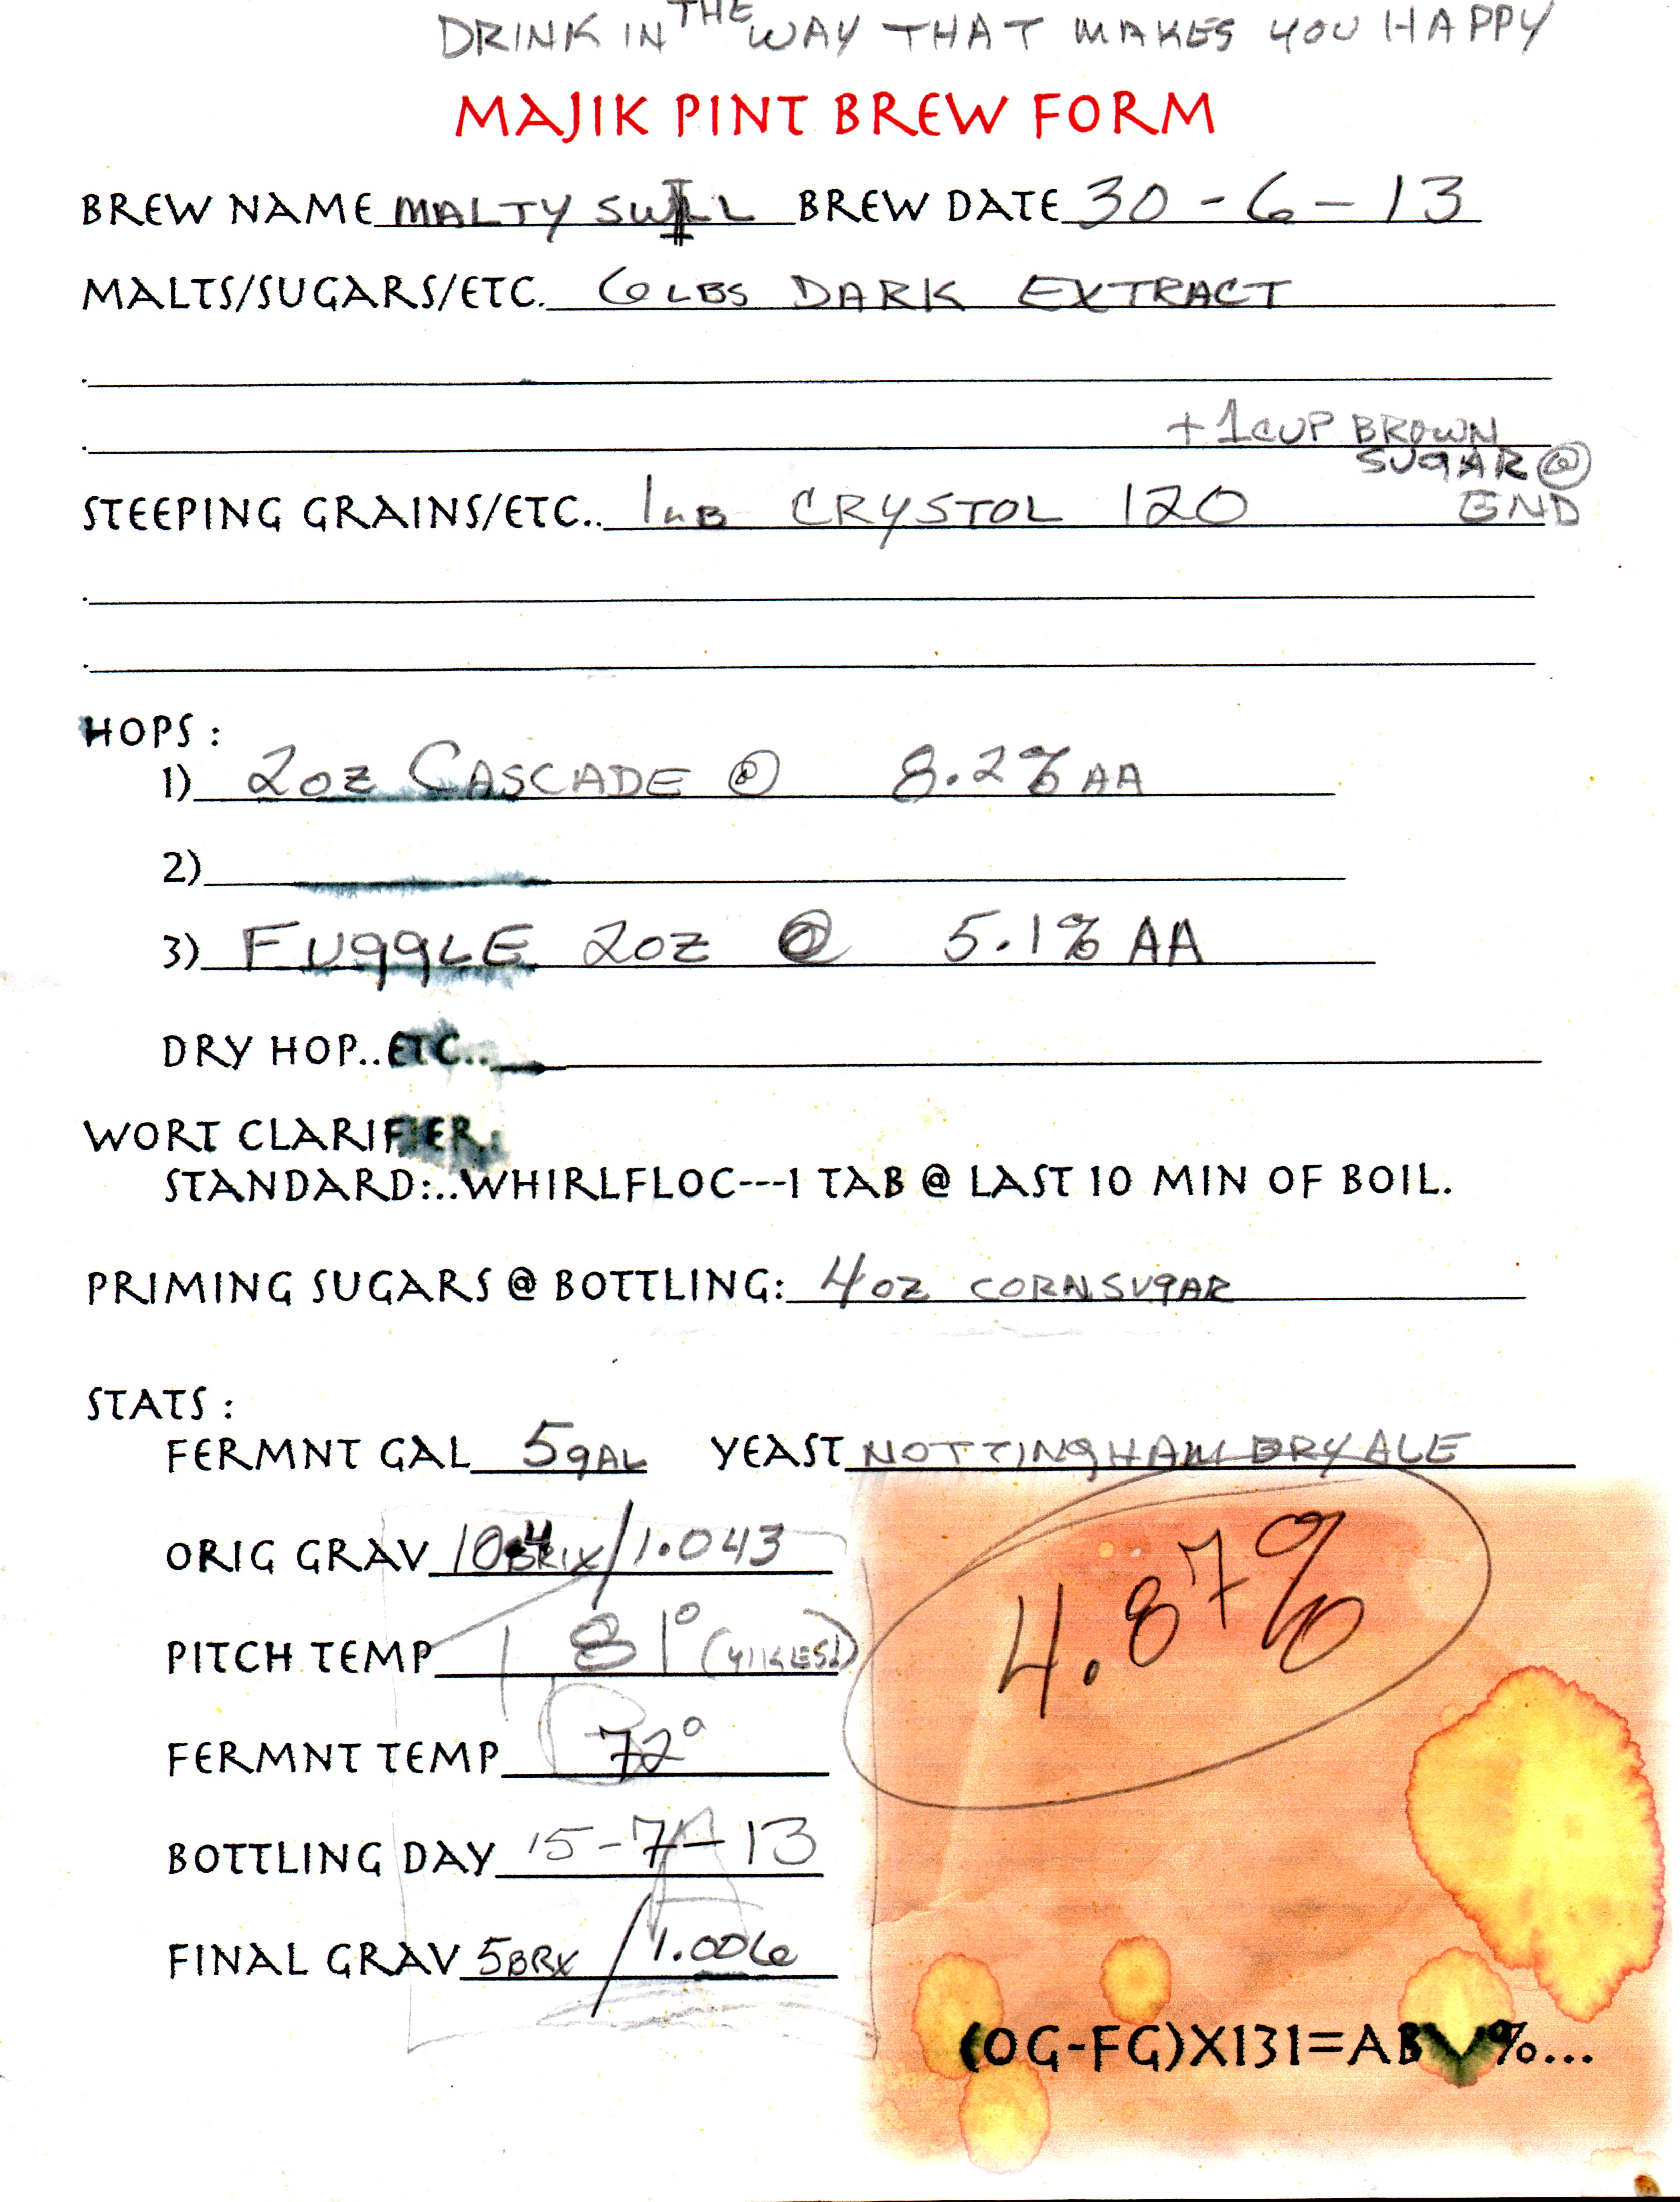 DRINK IN THE WAY THAT MAKES YOU HAPPY
MAJIK PINT BREW FORM
BREW NAME MALTY SWILL BREW DATE 30-6-13
MALTS/SUGARS/ETC. 6 LBS DARK EXTRACT
+1 CUP BROWN
SUGAR @
END
STEEPING GRAINS/ETC.. 1 LB CRYSTOL 120
HOPS :
1) 2OZ CASCADE @ 8.2% AA
2)
3) FUGGLE 2OZ @ 5.1% AA
DRY HOP..ETC..
WORT CLARIFIER:
STANDARD:..WHIRLFLOC---1 TAB @ LAST 10 MIN OF BOIL.
PRIMING SUGARS @ BOTTLING: 4 OZ CORN SUGAR
STATS :
FERMNT GAL 5 GAL YEAST NOTTINGHAM DRY ALE
ORIG GRAV 10.4 BRIX/1.043
PITCH TEMP 81° (YIKES!)
4.87%
FERMNT TEMP 72°
BOTTLING DAY 15-7-13
FINAL GRAV 5 BRX / 1.006
(OG-FG)X131=ABV%...